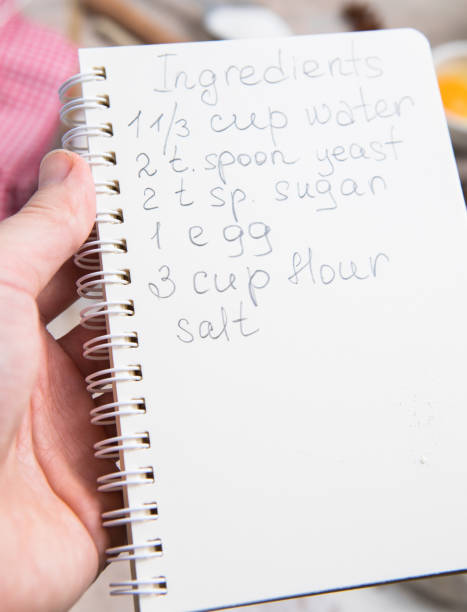 Ingredients
1 1/3 cup water
2 t. spoon yeast
2 t sp. sugar
1 egg
3 cup flour
salt